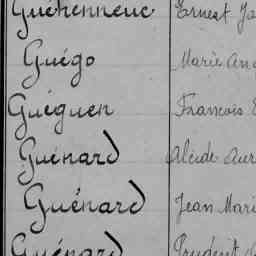 Guéhenneuc Ernest
Guégo Marie
Guéguen Francois
Guénard Alcide
Guénard Jean Mari
Guénard Prudent